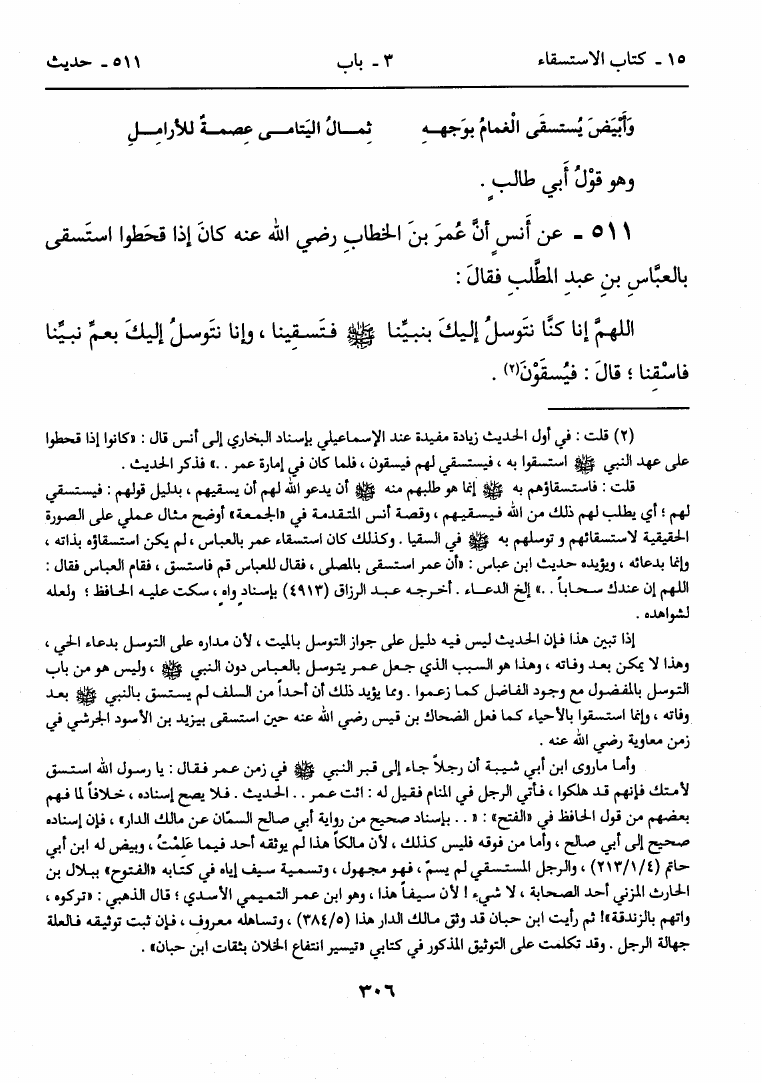 ١٥ ـ كتاب الاستسقاء ٣ ـ باب ٥١١ ـ حديث
وَأَبْيَضَ يُستسقَى الْغمامُ بوَجههِ ثِمـالُ اليَتامـى عِصمـةٌ للأرامِـلِ
وهو قوْلُ أَبي طالبٍ .
٥١١ ـ عن أَنسٍ أنَّ عُمرَ بنَ الخطابِ رضي الله عنه كانَ إذا قحَطوا استَسقى
بالعبَّاسِ بنِ عبدِ المطَّلبِ فقالَ :
اللهمَّ إنا كنَّا نتَوسلُ إليكَ بنبيِّنا ﷺ فتَسقِينا ، وإنا نتَوسلُ إليكَ بعمِّ نبيِّنا
فاسْقِنا ؛ قالَ : فيُسقَوْنَ(٢) .
(٢) قلت : في أول الحديث زيادة مفيدة عند الإسماعيلي بإسناد البخاري إلى أنس قال : «كانوا إذا قحطوا
على عهد النبي ﷺ استسقوا به ، فيستسقي لهم فيسقون ، فلما كان في إمارة عمر . .» فذكر الحديث .
قلت : فاستسقاؤهم به ﷺ إنما هو طلبهم منه ﷺ أن يدعو الله لهم أن يسقيهم ، بدليل قولهم : فيستسقي
لهم ؛ أي يطلب لهم ذلك من الله فيسقيهم ، وقصة أنس المتقدمة في «الجمعة» أوضح مثال عملي على الصورة
الحقيقية لاستسقائهم و توسلهم به ﷺ في السقيا . وكذلك كان استسقاء عمر بالعباس ، لم يكن استسقاؤه بذاته ،
وإنما بدعائه ، ويؤيده حديث ابن عباس : «أن عمر استسقى بالمصلى ، فقال للعباس قم فاستسق ، فقام العباس فقال :
اللهم إن عندك سحاباً . .» إلخ الدعاء . أخرجه عبد الرزاق (٤٩١٣) بإسنادٍ واهٍ ، سكت عليه الحافظ ؛ ولعله
لشواهده .
إذا تبين هذا فإن الحديث ليس فيه دليل على جواز التوسل بالميت ، لأن مداره على التوسل بدعاء الحي ،
وهذا لا يمكن بعد وفاته ، وهذا هو السبب الذي جعل عمر يتوسل بالعباس دون النبي ﷺ ، وليس هو من باب
التوسل بالمفضول مع وجود الفاضل كما زعموا . ومما يؤيد ذلك أن أحداً من السلف لم يستسق بالنبي ﷺ بعد
وفاته ، وإنما استسقوا بالأحياء كما فعل الضحاك بن قيس رضي الله عنه حين استسقى بيزيد بن الأسود الجرشي في
زمن معاوية رضي الله عنه .
وأما ماروى ابن أبي شيبة أن رجلاً جاء إلى قبر النبي ﷺ في زمن عمر فقال : يا رسول الله استسق
لأمتك فإنهم قد هلكوا ، فأتي الرجل في المنام فقيل له : ائت عمر . . الحديث . فلا يصح إسناده ، خلافاً لما فهم
بعضهم من قول الحافظ في «الفتح» : « . . بإسناد صحيح من رواية أبي صالح السمّان عن مالك الدار» ، فإن إسناده
صحيح إلى أبي صالح ، وأما من فوقه فليس كذلك ، لأن مالكاً هذا لم يوثقه أحد فيما عَلِمْتُ ، وبيض له ابن أبي
حاتم (٢١٣/١/٤) ، والرجل المستسقي لم يسمّ ، فهو مجهول ، وتسمية سيف إياه في كتابه «الفتوح» ببلال بن
الحارث المزني أحد الصحابة ، لا شيء ! لأن سيفاً هذا ، وهو ابن عمر التميمي الأسدي ؛ قال الذهبي : «تركوه ،
واتهم بالزندقة»! ثم رأيت ابن حبان قد وثق مالك الدار هذا (٣٨٤/٥) ، وتساهله معروف ، فإن ثبت توثيقه فالعلة
جهالة الرجل . وقد تكلمت على التوثيق المذكور في كتابي «تيسير انتفاع الخلان بثقات ابن حبان» .
٣٠٦